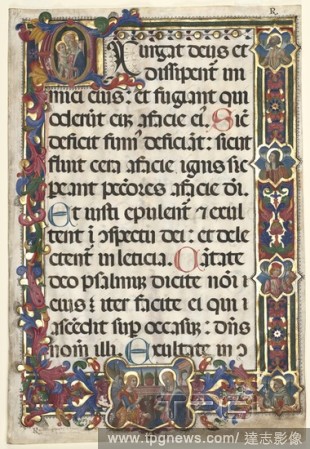 R
Exurgat deus et
dissipent ini
mici eius: et fugiant qui
oderūt eū afacie ei. Sic
deficit fum' deficiāt: sicut
fluit cera afacie ignis sic
peant pcc̄ores afacie dī.
Et iusti epulent' ⁊ exul
tent ī ɔspectu dei: et dele
ctent' in leticia. Cātate
deo psalmū dicite noī
eius: iter facite ei qui
ascēdit sup occasū: dn̄s
nom̄ illi. Exultate in ɔ
www.tpgnews.com/達志影像